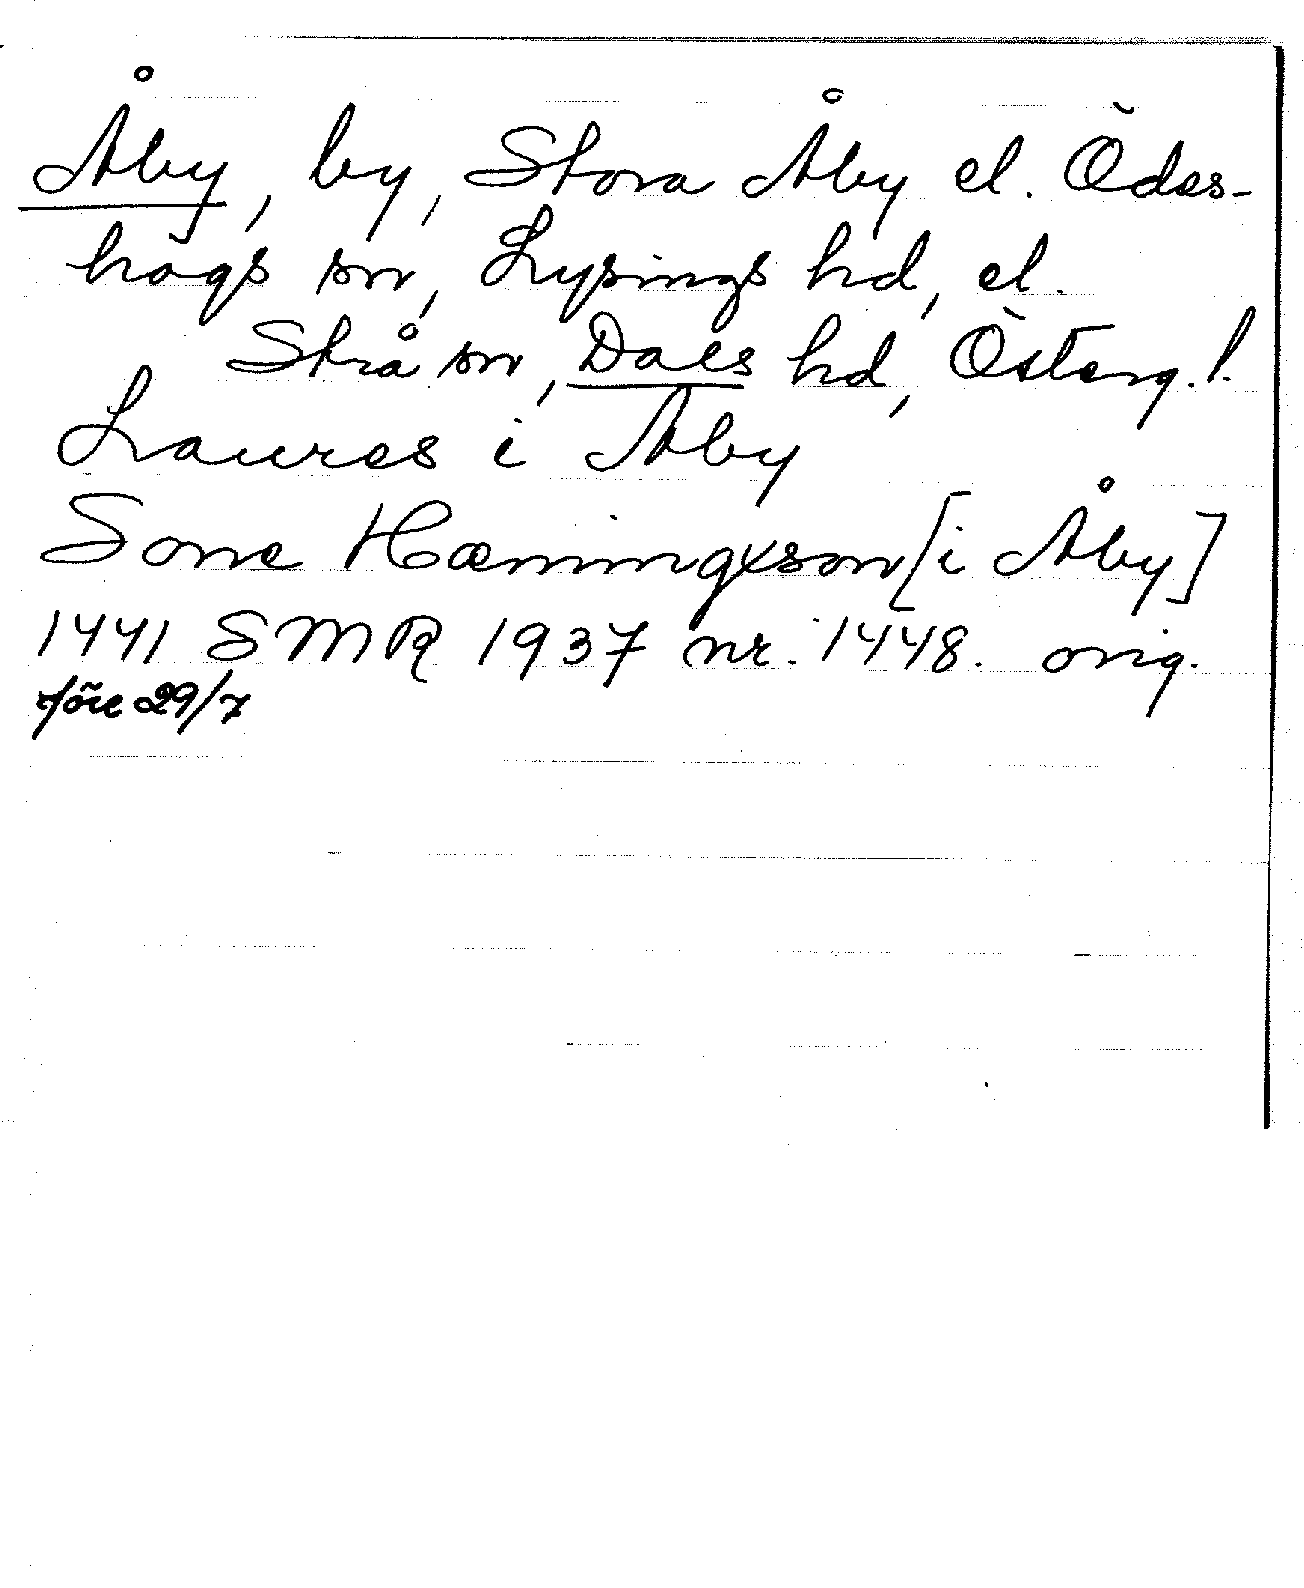 Åby, by, Stora Åby el. Ödes-
högs sn, Lysings hd, el.
Strå sn, Dals hd, Österg. l.
Laures i Aby
Sone Hæmingxson [i Åby]
1441 SMR 1937 nr. 1448. orig.
före 29/7